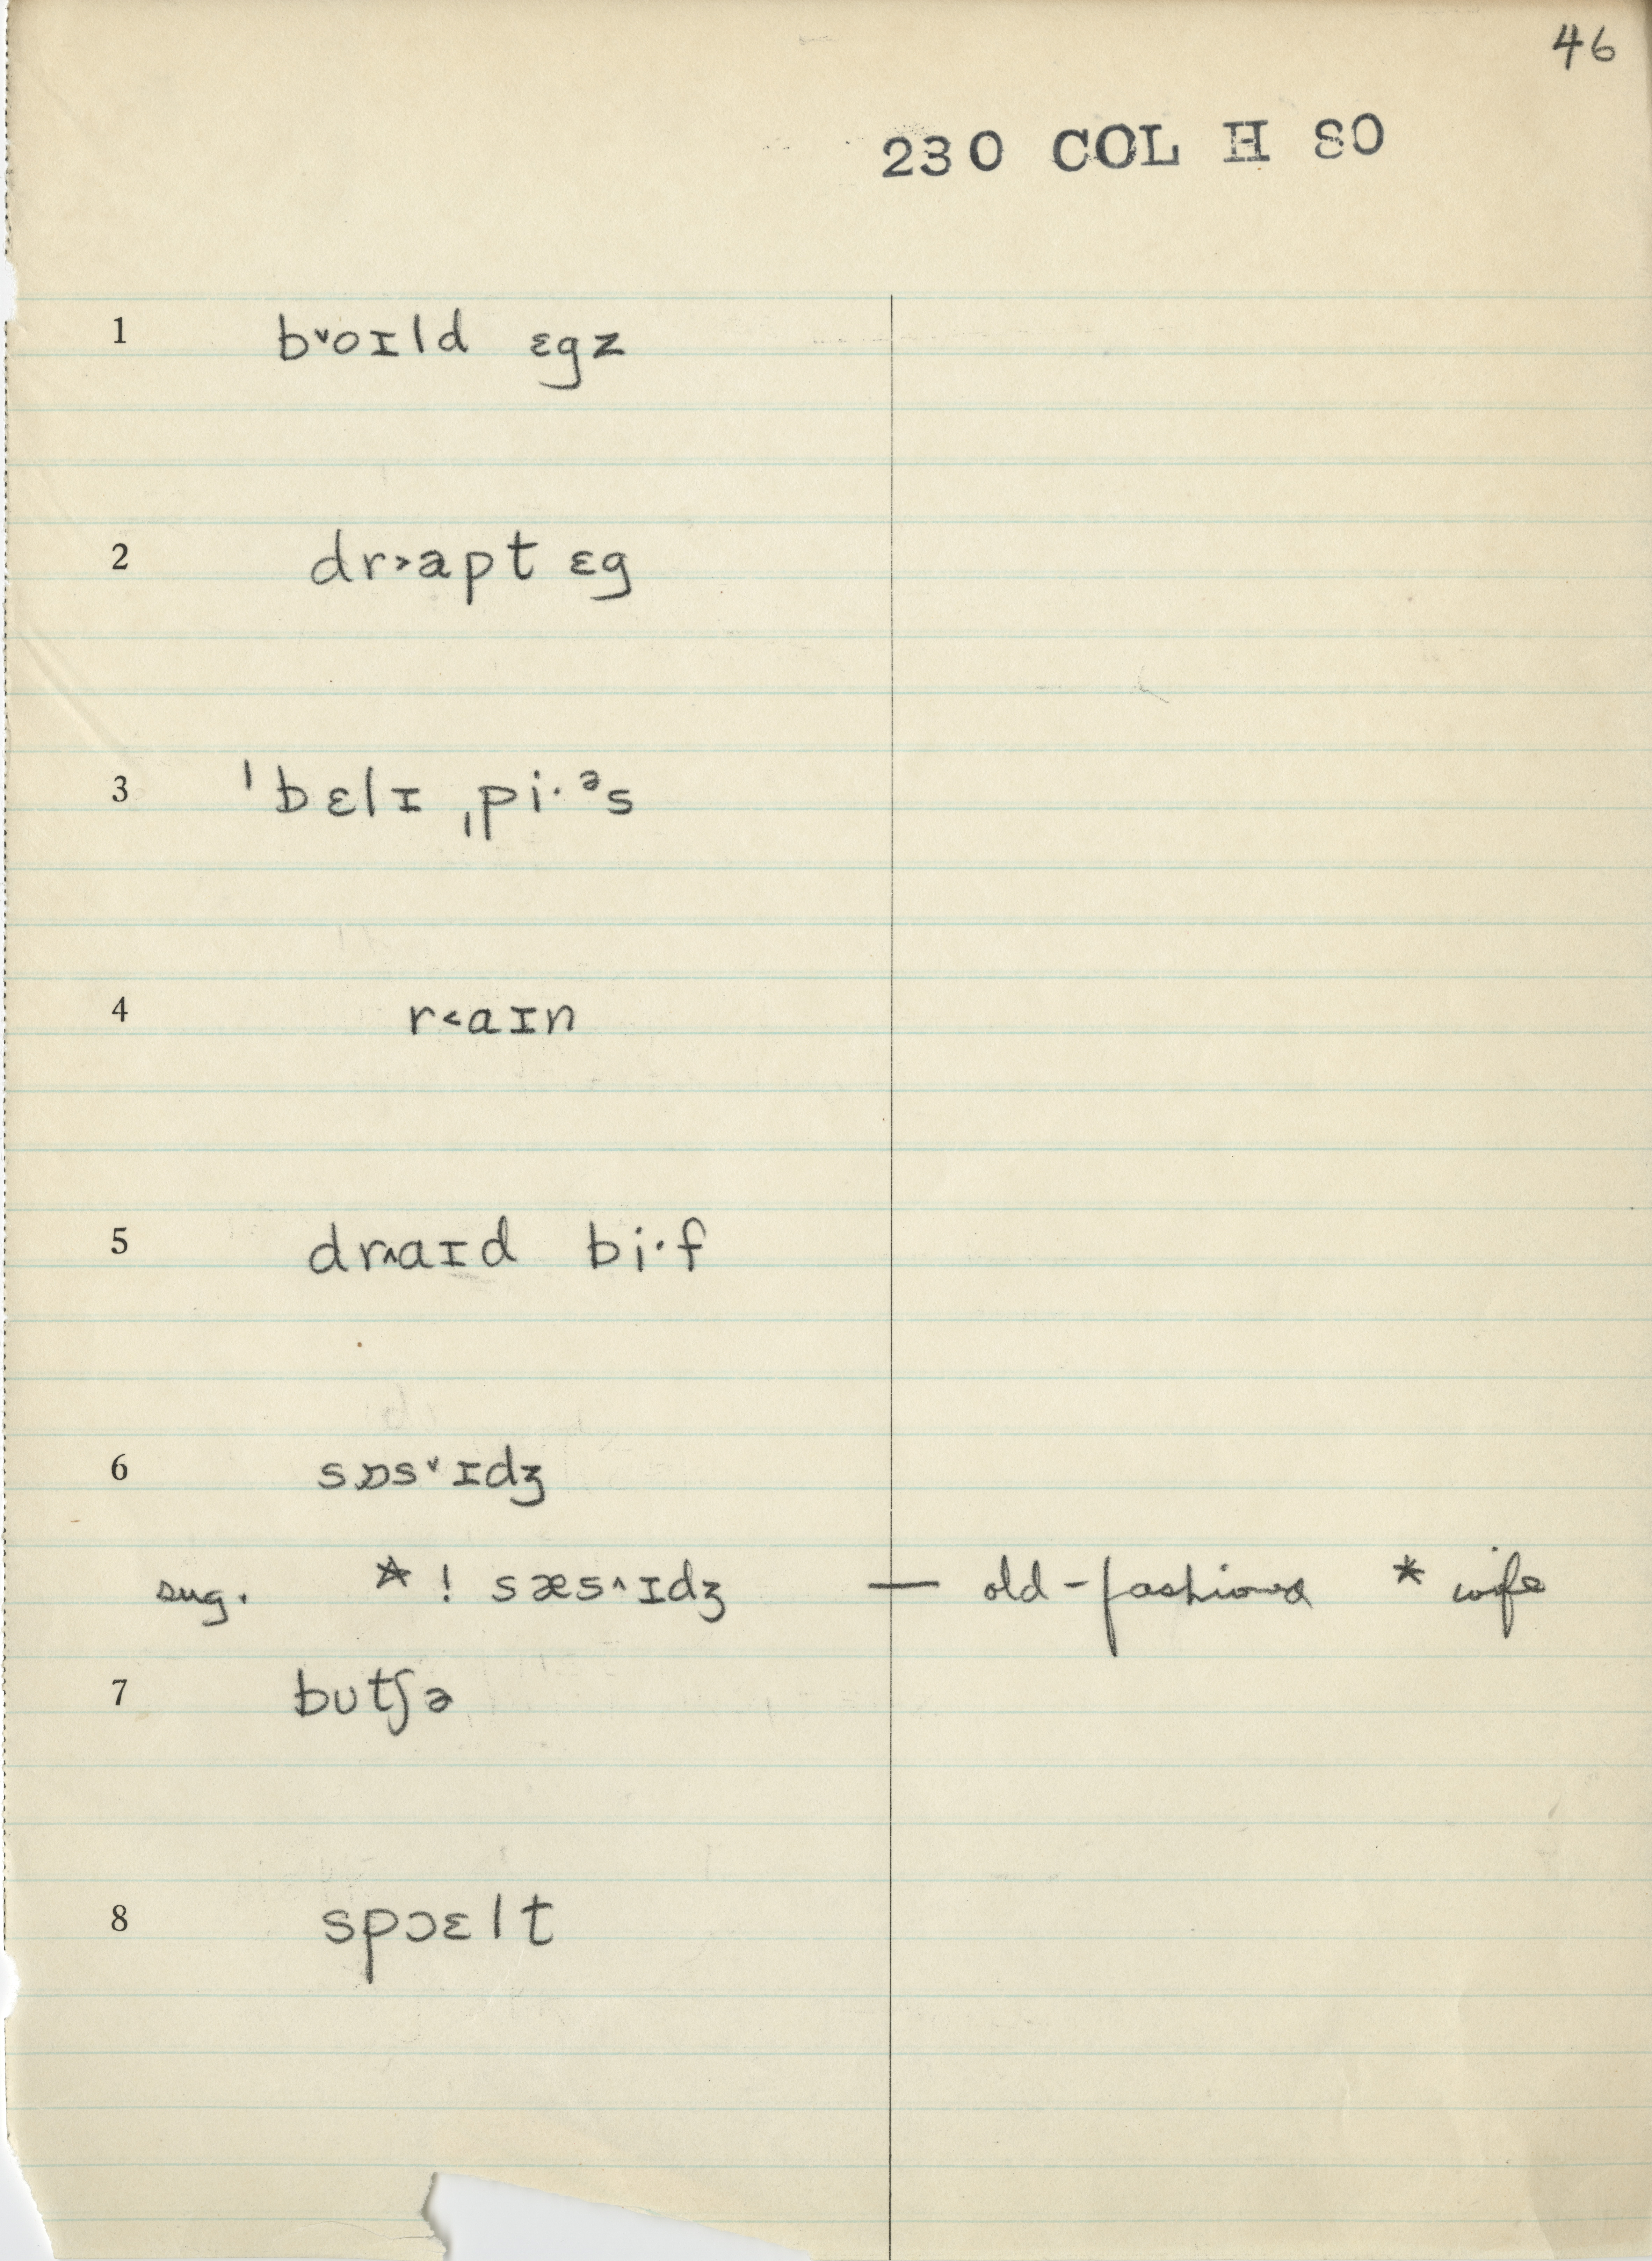 46
230 COL H 80
1 b˅oɪld ɛgz
2 dr˃apt ɛg
3 ˈbɛlɪ ˌpi·ᵊs
4 r˂aɪn
5 dr˄aɪd bi·f
6 sɒs˅ɪdʒ
sug. * ! sæs˄ɪdʒ — old-fashioned * wife
7 bʊtʃə
8 spɔɛlt